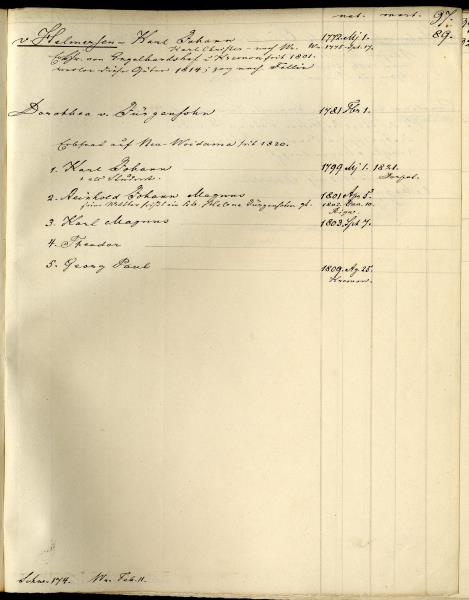 nat. mort. 97.
v. Helmersen – Karl Johann 1772 Mj 1. 89.
Karl Christer – nach Wr. Wr. 1775. Spt. 17.
Erbhr. von Engelhardshof u Kremon seit 1801.
verlor diese Güter 1814; zog nach Fellin
Dorothea v. Jürgensohn 1781 Fbr 1.
Erbfrau auf Neu Woidama seit 1820.
1. Karl Johann 1799 Mj 1. 1821.
+ als Student. Dorpat.
2. Reinhold Johann Magnus 1801 Ap. 5.
seine Mutter heißt ein lib. Helene Jürgensohn gt. 1802. Jan. 10.
Riga.
3. Karl Magnus 1803 Spt 7.
4. Theodor
5. Georg Paul 1809. Ag. 25.
Kremon.
174. Wr. Feb. 11.